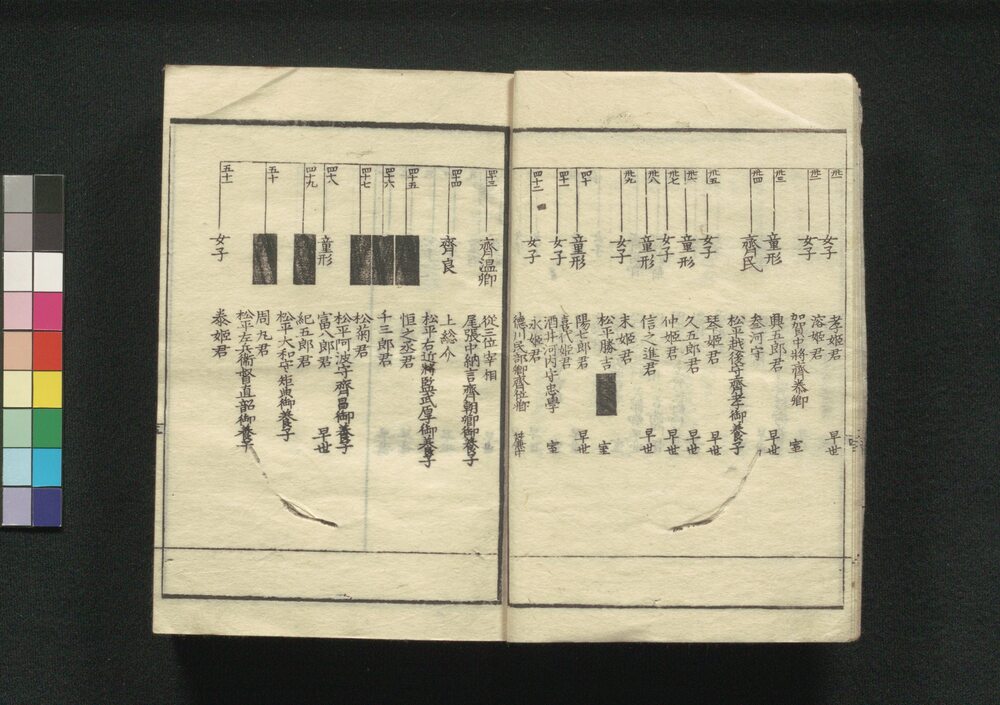 卅一 女子 孝姫君 早世
卅二 女子 溶姫君
加賀中將齊泰卿 室
卅三 童形 興五郎君 早世
卅四 齊民 參河守
松平越後守齊孝御養子
卅五 女子 琴姫君 早世
卅六 童形 久五郎君 早世
卅七 女子 仲姫君 早世
卅八 童形 信之進君 早世
卅九 女子 末姫君
松平勝吉 室
四十 童形 陽七郎君 早世
四十一 女子 喜代姫君
酒井河内守忠學 室
四十二 女子 永姫君
德川民部卿齊位卿
四十三 齊温卿 從三位宰相
尾張中納言齊朝卿御養子
四十四 齊良 上総介
松平右近將監武厚御養子
四十五 恒之丞君
四十六 千三郎君
四十七 松菊君
松平阿波守齊昌御養子
四十八 童形 富八郎君 早世
四十九 紀五郎君
松平大和守矩典御養子
五十 周丸君
松平左兵衞督直韶御養子
五十一 女子 泰姫君